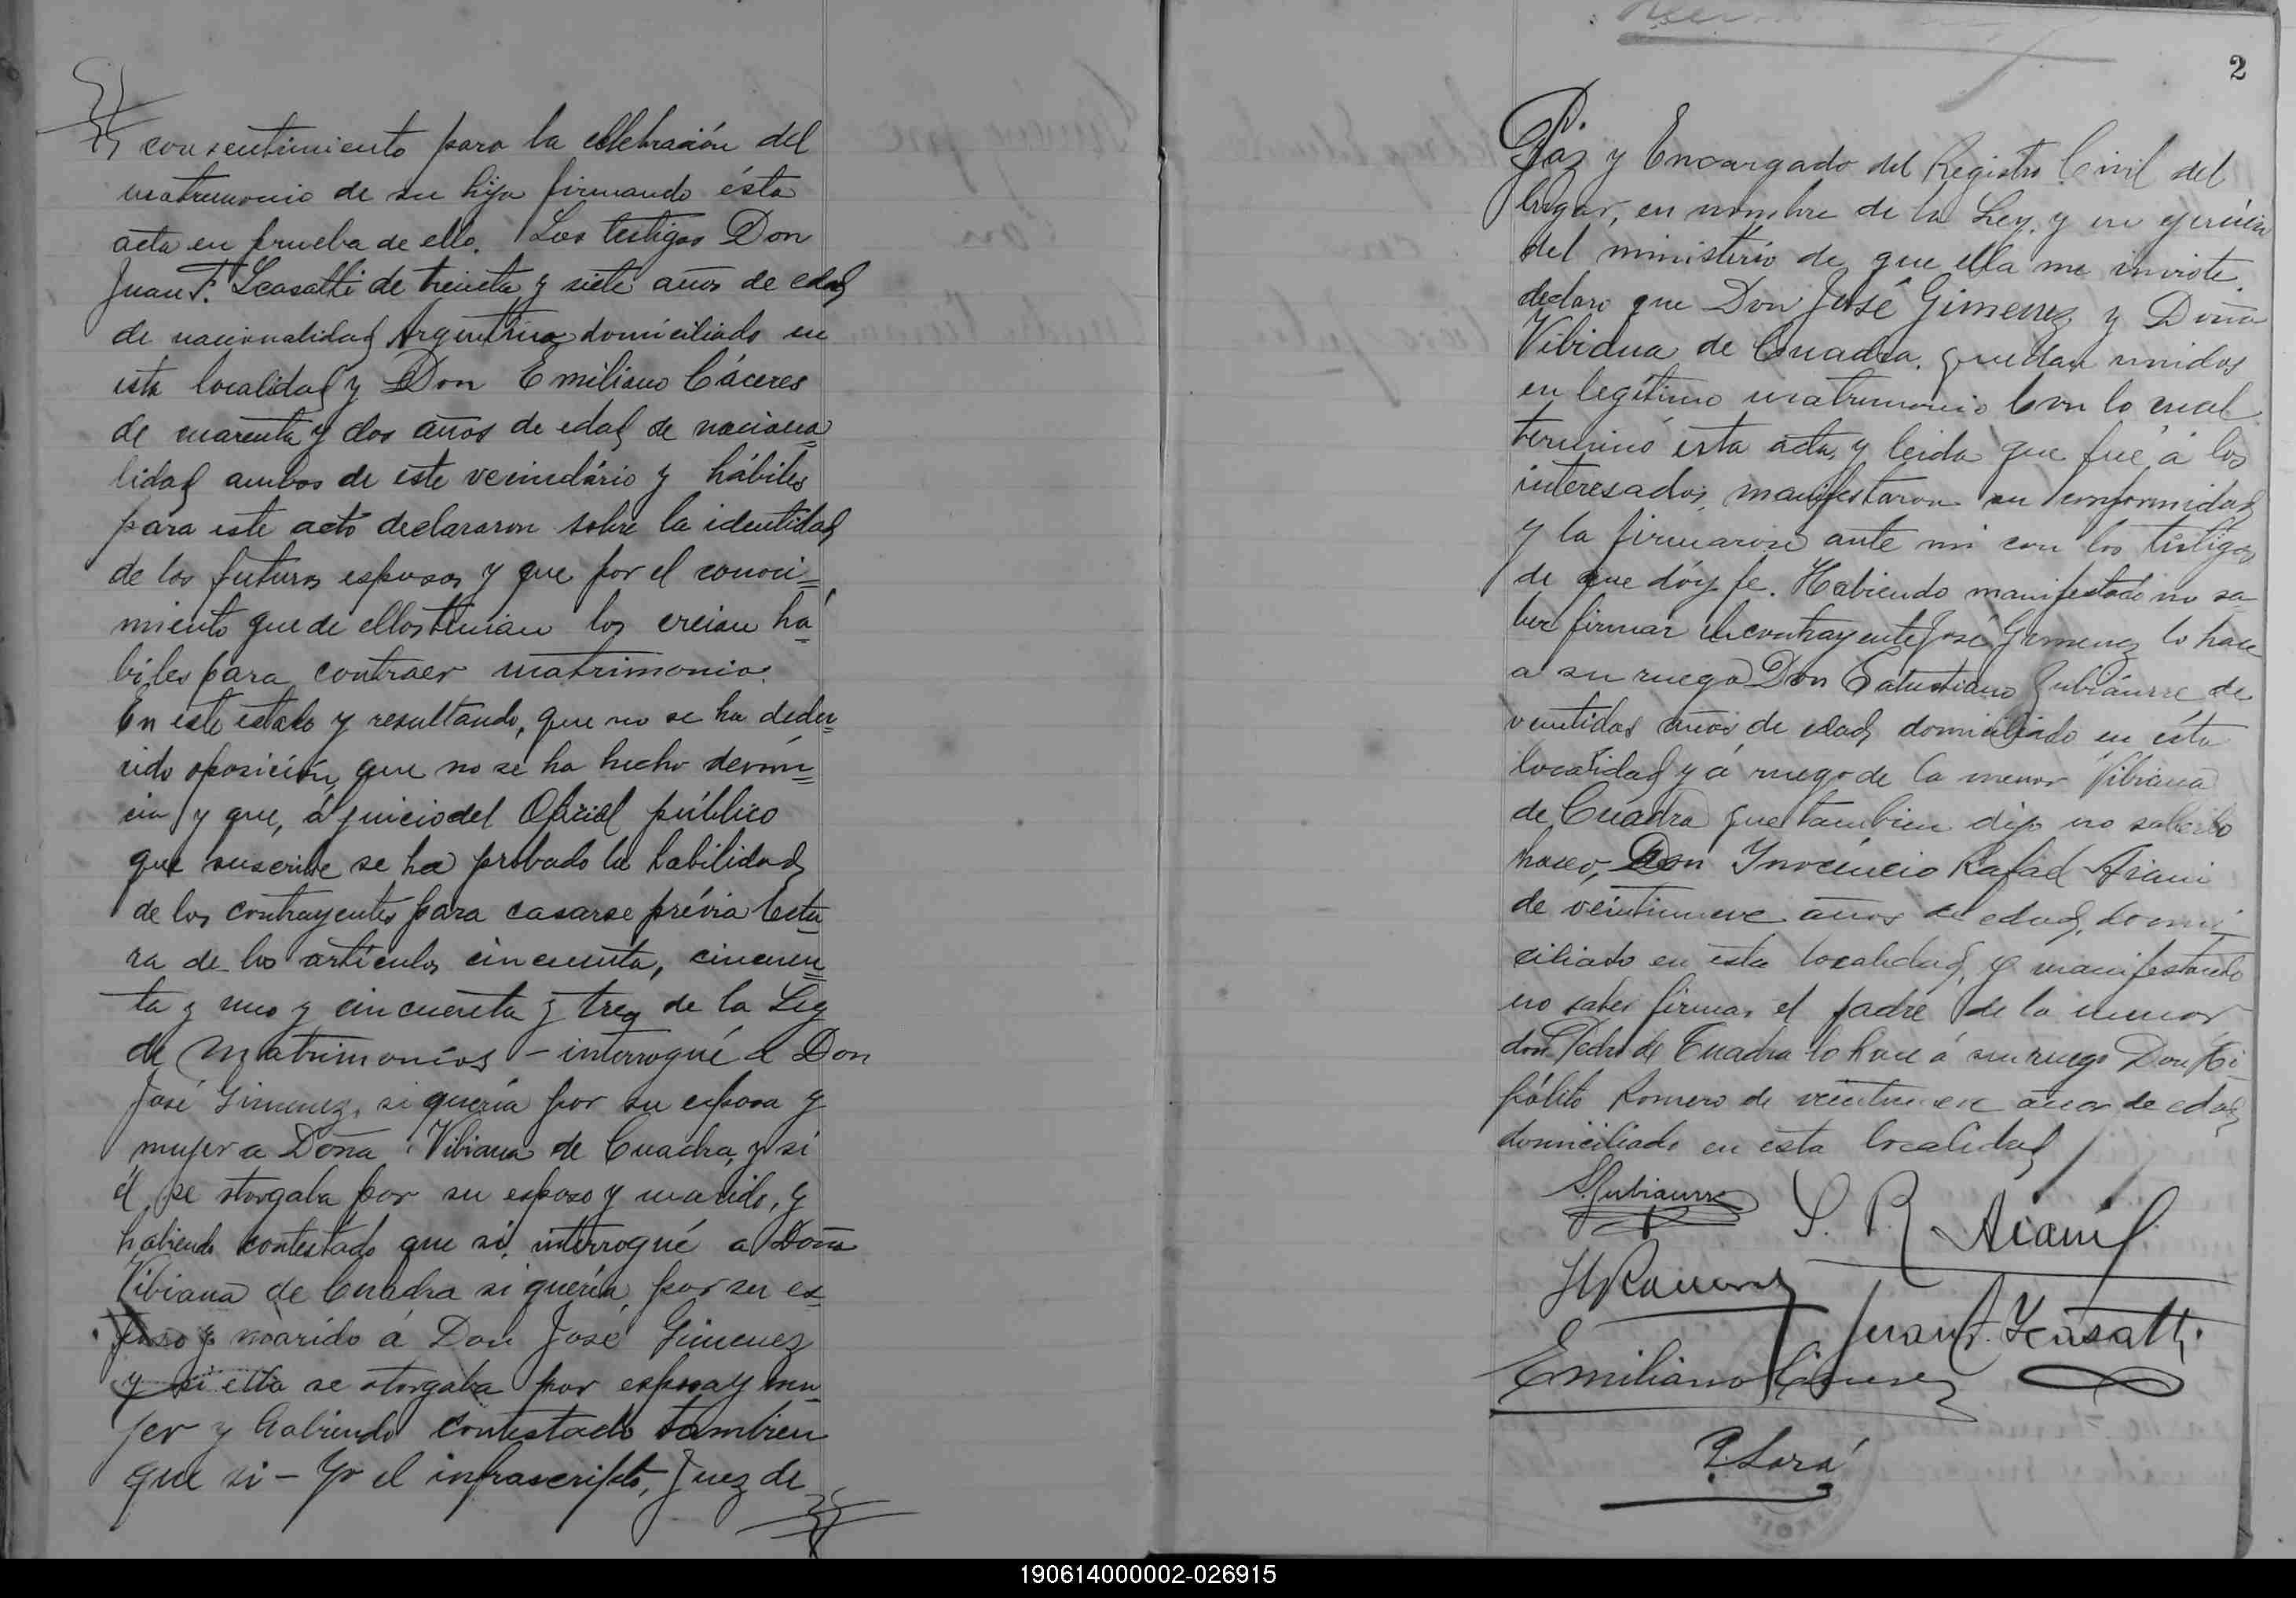 consentimiento para la cellebración del
matrimonio de su hija firmando ésta
acta en prueba de ello. Los testigos Don
Juan F. Scasatti de treinta y siete años de edad
de nacionalidad Argentina domiciliado en
esta localidad y Don Emiliano Cáceres
de cuarenta y dos años de edad de naciona=
lidad ambos de este vecindário y hábiles
para este acto declararon sobre la identidad
de los futuros esposos y que por el conoci=
miento que de ellos tenian los creian há=
biles para contraer matrimonio.
En este estado y resultando, que no se ha dedu=
cido oposición, que no se ha hecho denún=
cia y que, á juicio del Oficial público
que suscribe se ha probado la habilidad
de los contrayentes para casarse prévia lectu=
ra de los artículos cincuenta, cincuen=
ta y uno y cincuenta y tres de la Ley
de Matrimonios - interrogué a Don
José Gimenez, si quería por su esposa y
mujer a Doña Vibiana de Cuadra, y si
él se otorgaba por su esposo y marido, y
habiendo contestado que si, interrogué a Doña
Vibiana de Cuadra si quería por su es=
poso y marido á Don José Gimenez
y si ella se otorgaba por esposa y mu=
jer y habiendo contestado tambien
que si - Yo el infrascripto, Juez de
2
Paz y Encargado del Registro Civil del
lugar, en nombre de la Ley, y en ejercicio
del ministerio de que ella me inviste,
declaro que Don José Gimenez y Doña
Vibiana de Cuadra, quedan unidos
en legítimo matrimonio Con lo cual
terminó esta acta, y leida que fué á los
interesados, manifestaron su conformidad
y la firmaron ante mi con los testigos
de que dóy fe. Habiendo manifestado no sa=
ber firmar el contrayente José Gimenez lo hace
a su ruego Don Salustiano Zubiáurre de
veintidos años de edad, domiciliado en ésta
localidad y á ruego de la menor Vibiana
de Cuadra que tambien dijo no saberlo
hacer, Don Inocencio Rafael
de veintinueve años de edad, domi=
ciliado en esta localidad, y manifestando
no saber firmar el padre de la menor
don Pedro de Cuadra lo hace á su ruego Don Hi=
pólito Romero de veintinueve años de edad,
domiciliado en esta localidad
S. Zubiaurre
R.
H Romero
Juan F. Scasatti.
Emiliano Cáceres
190614000002-026915